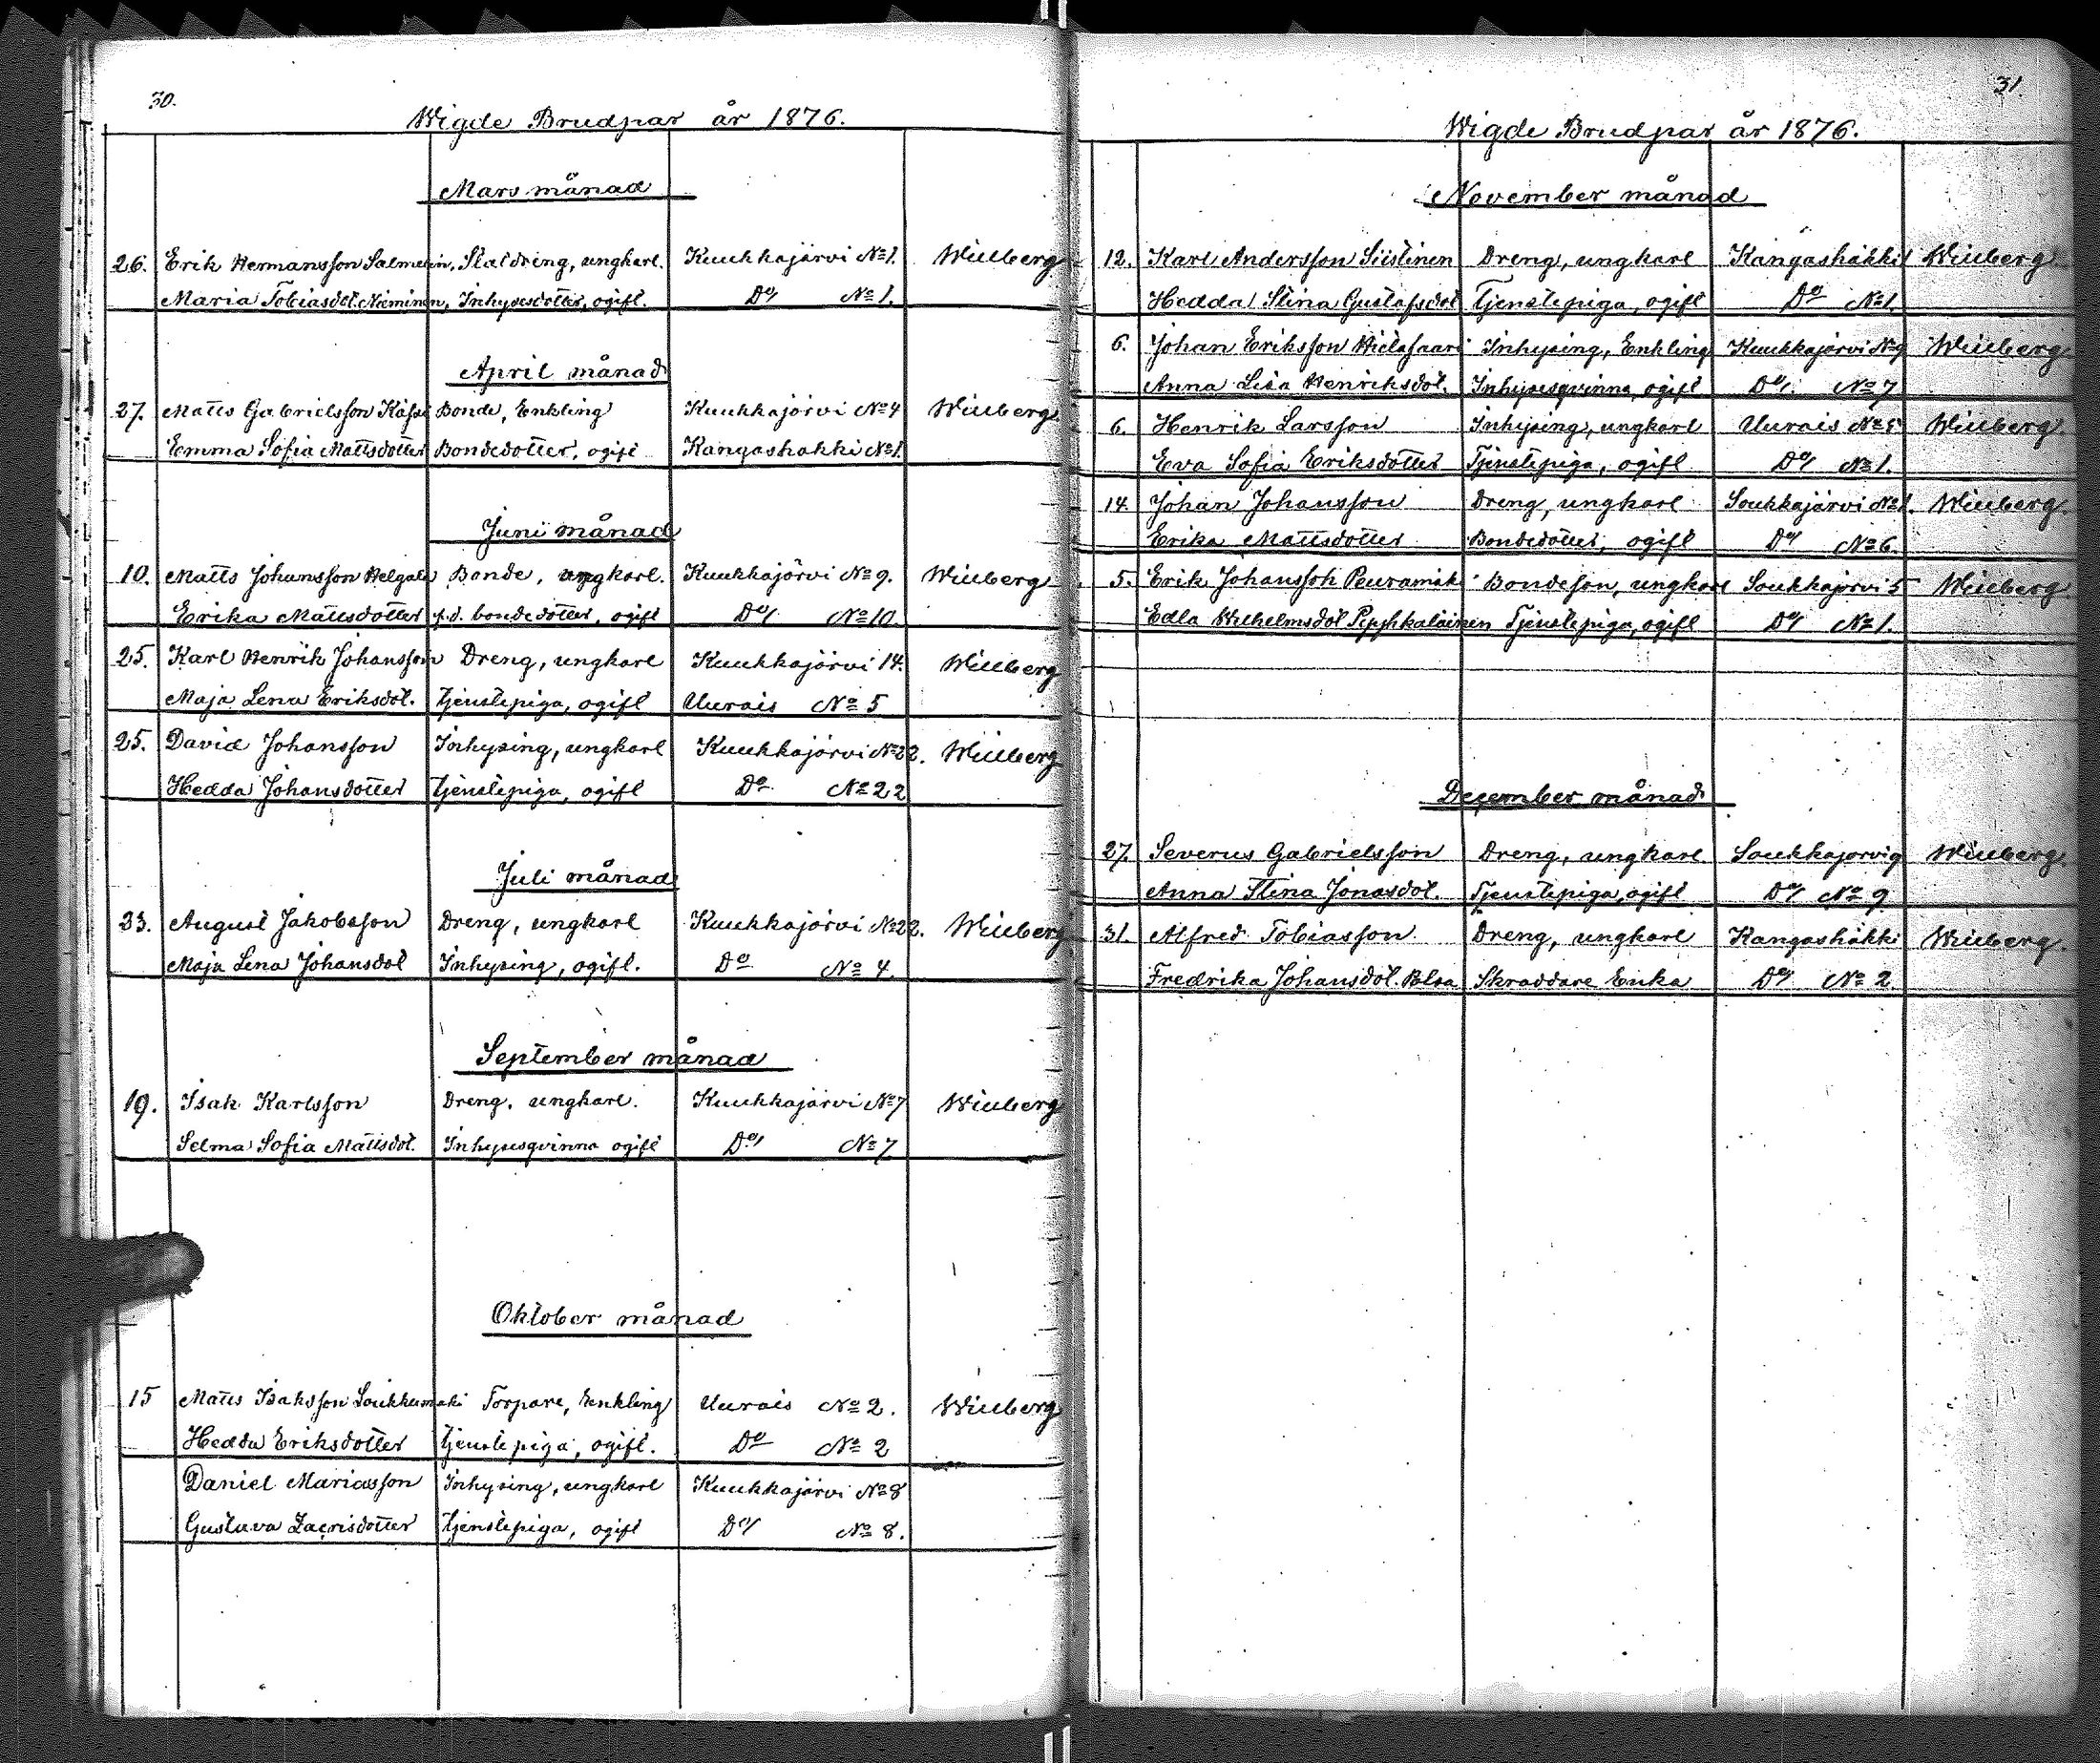 30.
Wigde Brudpar år 1876.
Mars månad
26. Erik Hermansson Salmelin, Staldreng, ungkarl. Kuukkajärvi No 1. Wiuberg
Maria Tobiasdot. Nieminen, Inhysesdotter, ogift. Do/ No 1.
April månad
27. Matts Gabrielsson Bonde, Enkling Kuukkajärvi No 4 Wiuberg
Emma Sofia Mattsdotter Bondedotter, ogift Kangashakki No 1.
Juni månad
10. Matts Johansson Bonde, ungkarl. Kuukkajärvi No 9. Wiuberg
Erika Mattsdotter f.d. bondedotter, ogift Do/ No 10
25. Karl Henrik Johansson Dreng, ungkarl Kuukkajärvi 14. Wiuberg
Maja Lena Eriksdot. tjenstepiga, ogift Uurais No 5
25. David Johansson Inhysing, ungkarl Kuukkajärvi No 22. Wiuberg
Hedda Johansdotter tjenstepiga, ogift Do No 22
Juli månad
23. August Jakobsson Dreng, ungkarl Kuukkajärvi No 22. Wiuberg
Maja Lena Johansdot Inhysing, ogift. Do No 4.
September månad
19. Isak Karlsson Dreng, ungkarl. Kuukkajärvi No 7 Wiuberg
Selma Sofia Mattsdot. Inhysesqvinna ogift Do/ No 7
Oktober månad
15 Matts Isaksson Loukkumaki Torpare, Enkling Uurais No 2. Wiuberg
Hedda Eriksdotter tjenstepiga, ogift. Do No 2
Daniel Mariasson Inhysing, ungkarl Kuukkajärvi No 8
Gustava Zacrisdotter tjenstepiga, ogift Do/ No 8.
31.
Wigde Brudpar år 1876.
November månad
12. Karl Andersson Siistinen Dreng, ungkarl Kangashakki 1 Wiuberg
Hedda Stina Gustafsdot Tjenstepiga, ogift Do No 1.
6. Johan Eriksson Inhysing, Enkling Kuukkajärvi No 9 Wiuberg
Anna Lisa Henriksdot. Inhysesqvinna, ogift Do/. No 7
6. Henrik Larsson Inhysing, ungkarl Uurais No Wiuberg
Eva Sofia Eriksdotter Tjenstepiga, ogift Do/ No 1.
14 Johan Johansson Dreng, ungkarl Soukkajärvi No 1. Wiuberg
Erika Mattsdotter Bondedotter, ogift Do/ No 6.
5. Erik Johansson Peuramäki Bondeson, ungkarl Soukkajärvi 5 Wiuberg
Edla Wilhelmsdot Tjenstepiga, ogift Do/ No 1.
December månad
27. Severus Gabrielsson Dreng, ungkarl Soukkajärvi 9 Wiuberg
Anna Stina Jonasdot. Tjenstepiga, ogift Do/ No 9
31. Alfred Tobiasson Dreng, ungkarl Kangashäkki Wiuberg
Fredrika Johansdot. Skraddare Enka Do/ No 2.